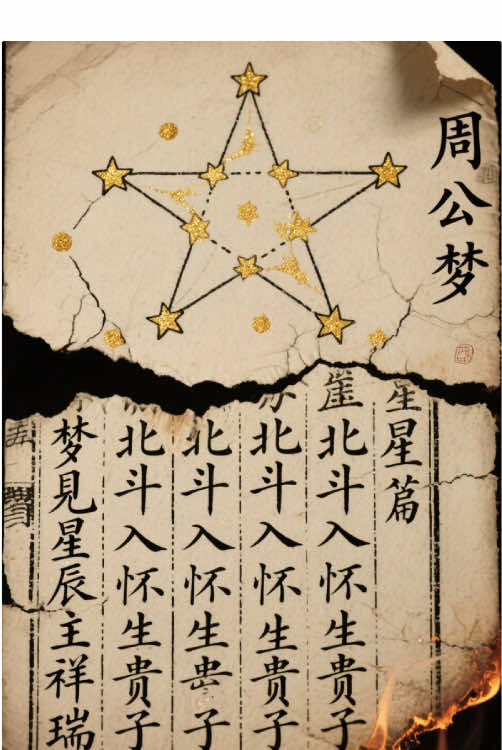 周公梦
星星篇
崖北斗入怀生贵子
北斗入怀生贵子
北斗入怀生子
北斗入怀生贵子
梦見星辰主祥瑞